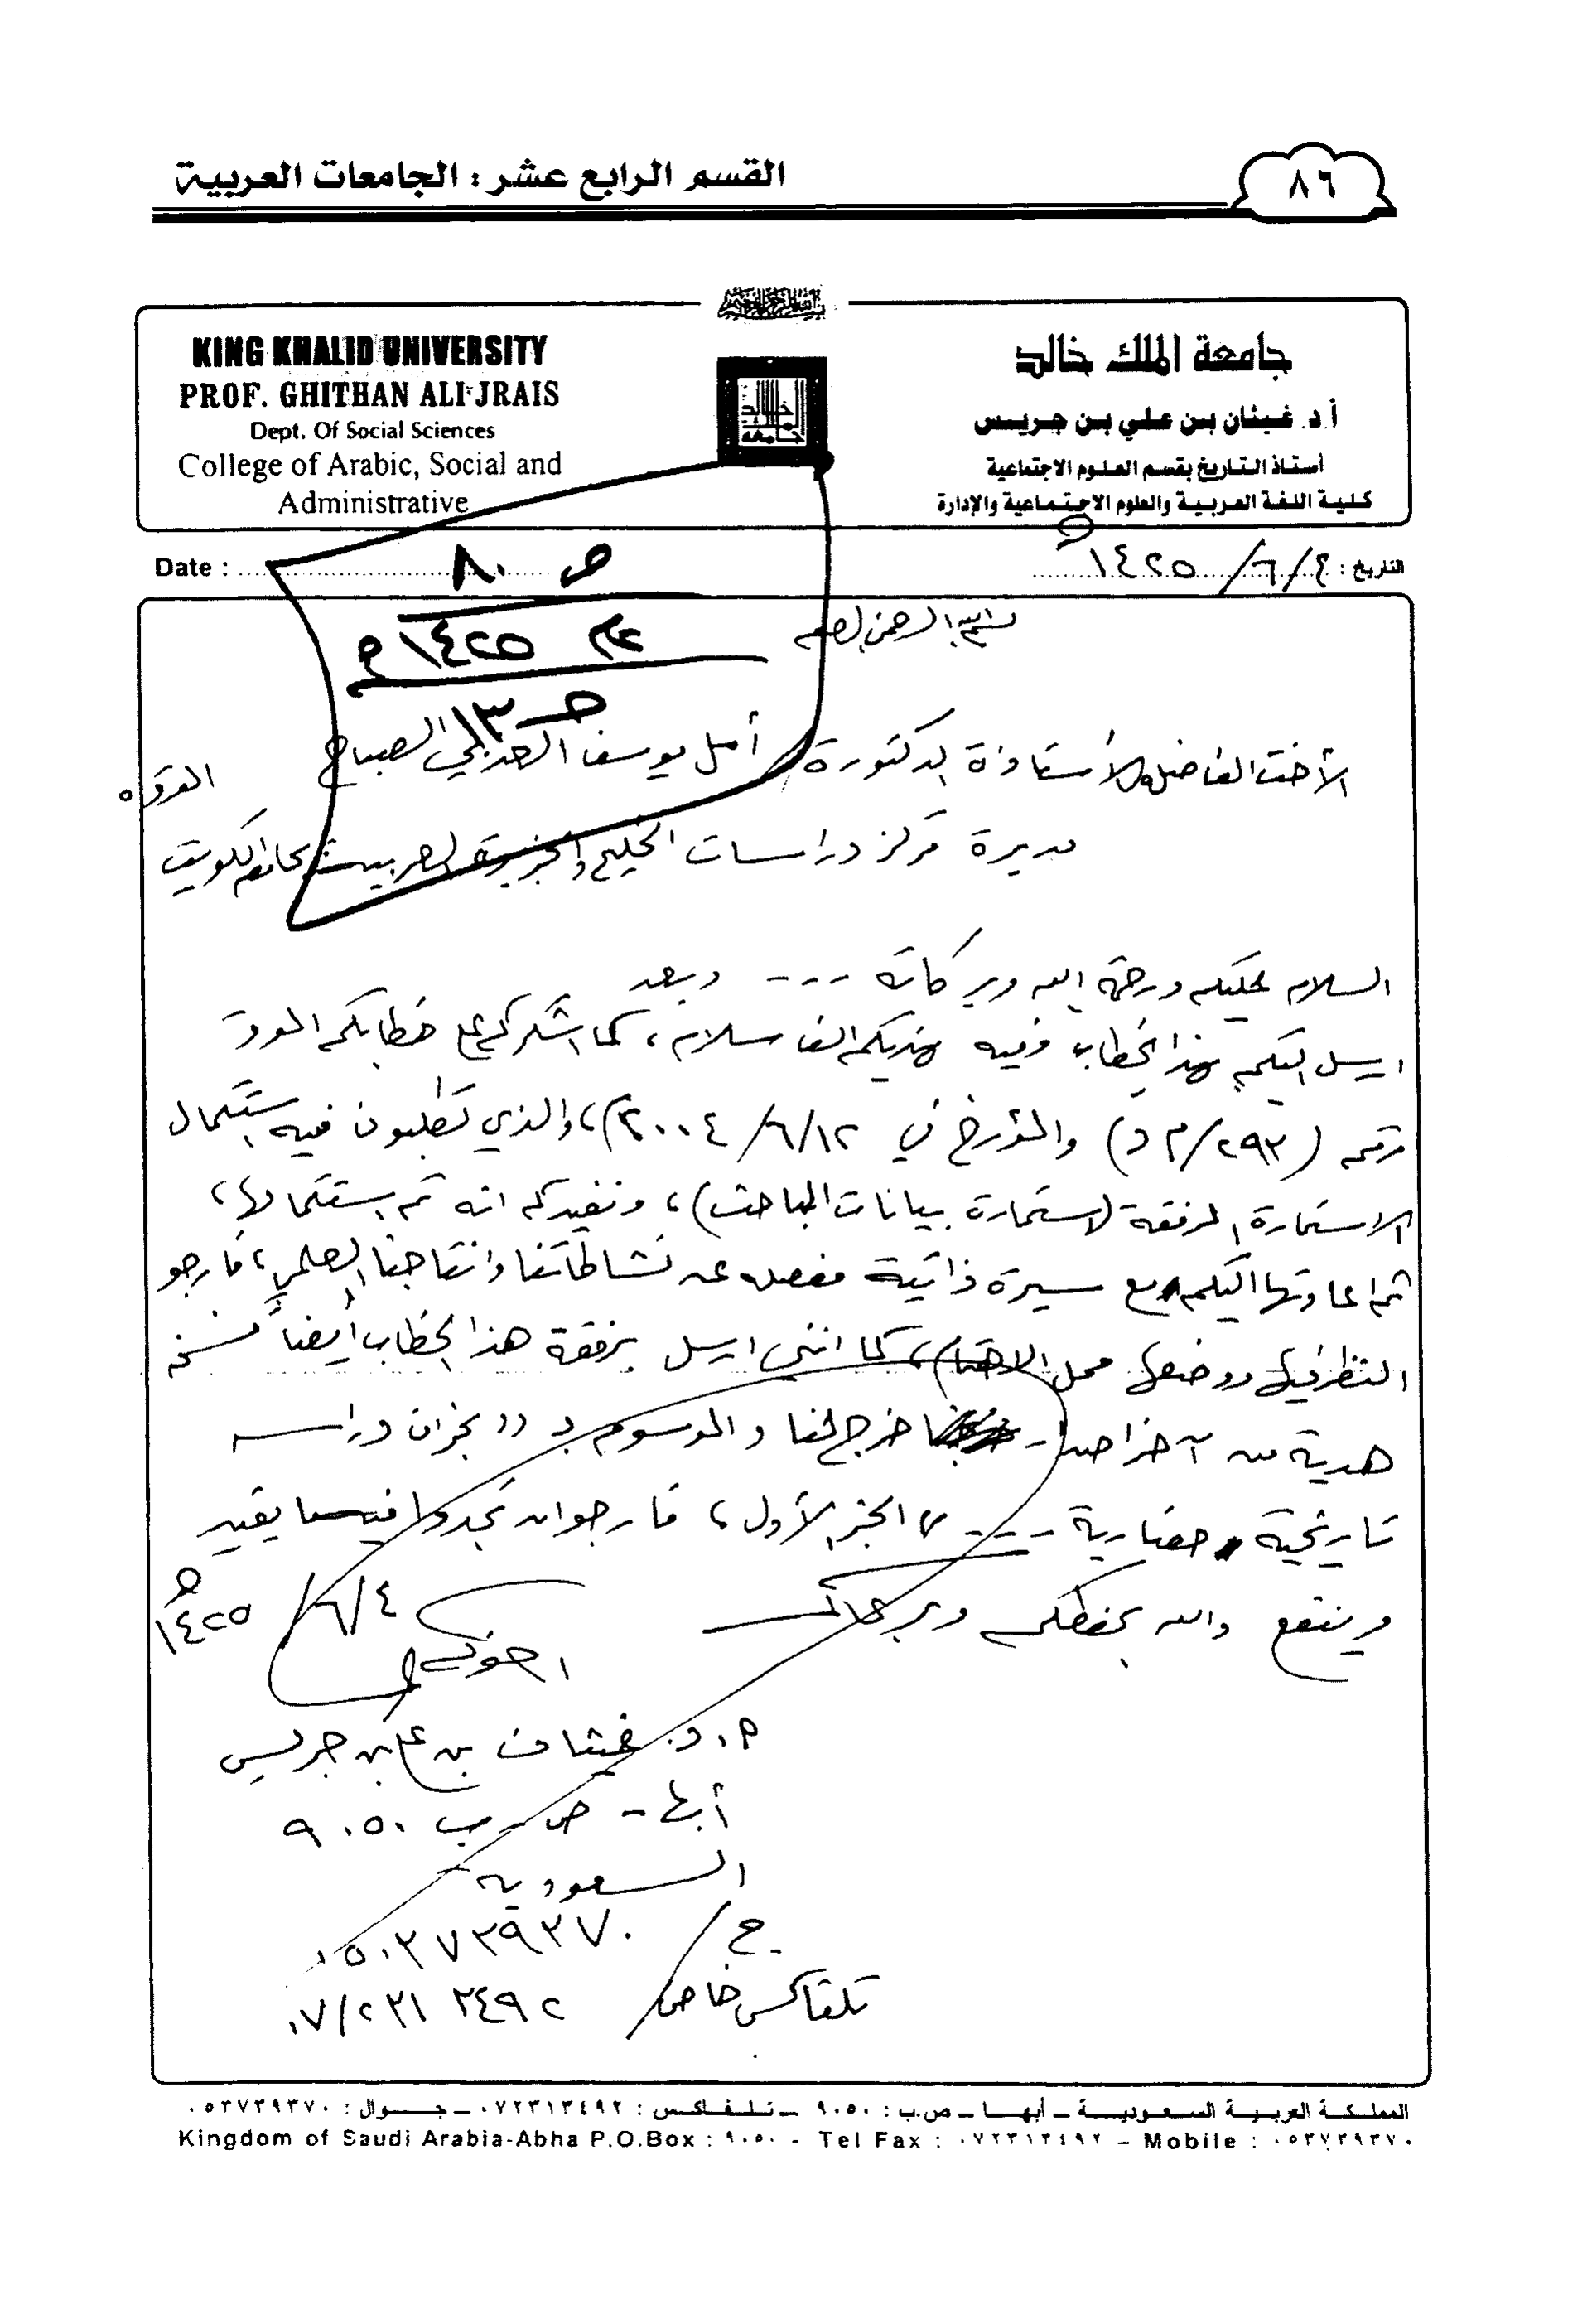 القسم الرابع عشر : الجامعات العربية
٨٦
جامعة الملك خالد
أ.د. غيثان بن علي بن جريس
أستاذ التاريخ بقسم العلوم الاجتماعية
كلية اللغة العربية والعلوم الاجتماعية والإدارة
KING KHALID UNIVERSITY
PROF. GHITHAN ALI JRAIS
Dept. Of Social Sciences
College of Arabic, Social and
Administrative
التاريخ : ٤/٦/١٤٢٥هـ
Date :
ص ٨٠
عام ١٤٢٥هـ
جـ ١٣
بسم الله الرحمن الرحيم
الأخت الفاضلة الأستاذة الدكتورة / أمل يوسف العذبي الصباح الموقرة
مديرة مركز دراسات الخليج والجزيرة العربية بجامعة الكويت
السلام عليكم ورحمة الله وبركاته --- وبعد
ارسل اليكم هذا الخطاب وفيه نهديكم الف سلام، كما اشكركم على خطابكم الموقر
رقم (٢٩٣/م د) والمؤرخ في ١٢/٦/٢٠٠٤م)، والذي تطلبون فيه استكمال
الاستمارة المرفقة (استمارة بيانات الباحث)، ونفيدكم انه تم استكمالها،
ثم اعادتها اليكم مع سيرة ذاتية مفصله عن نشاطاتنا وانتاجنا العلمي، فارجو
النظر فيها ووضعها محل الاهتمام، كما انني ارسل برفقة هذا الخطاب أيضاً نسخه
هدية من آخر اصدار خرج لنا والموسوم بـ (( نجران دراسه
تاريخية حضارية --- )) الجزء الأول، فارجو ان تجدوا فيها ما يفيد
وينفع والله يحفظكم ويرعاكم
٤/٦/١٤٢٥هـ
اخوكم
أ.د. غيثان بن علي بن جريس
أبها - ص.ب ٩٠٥٠
السعودية
ج/ ٠٥٠٣٧٣٩٣٧٠
تلفاكس خاص/ ٠٧/٢٣١٣٤٩٢
المملكة العربية السعودية – أبها – ص.ب : ٩٠٥٠ – تلفاكس : ٠٧٢٣١٣٤٩٢ – جوال : ٠٥٣٧٣٩٣٧٠
Kingdom of Saudi Arabia-Abha P.O.Box : ٩٠٥٠ - Tel Fax : ٠٧٢٣١٣٤٩٢ – Mobile : ٠٥٣٧٣٩٣٧٠